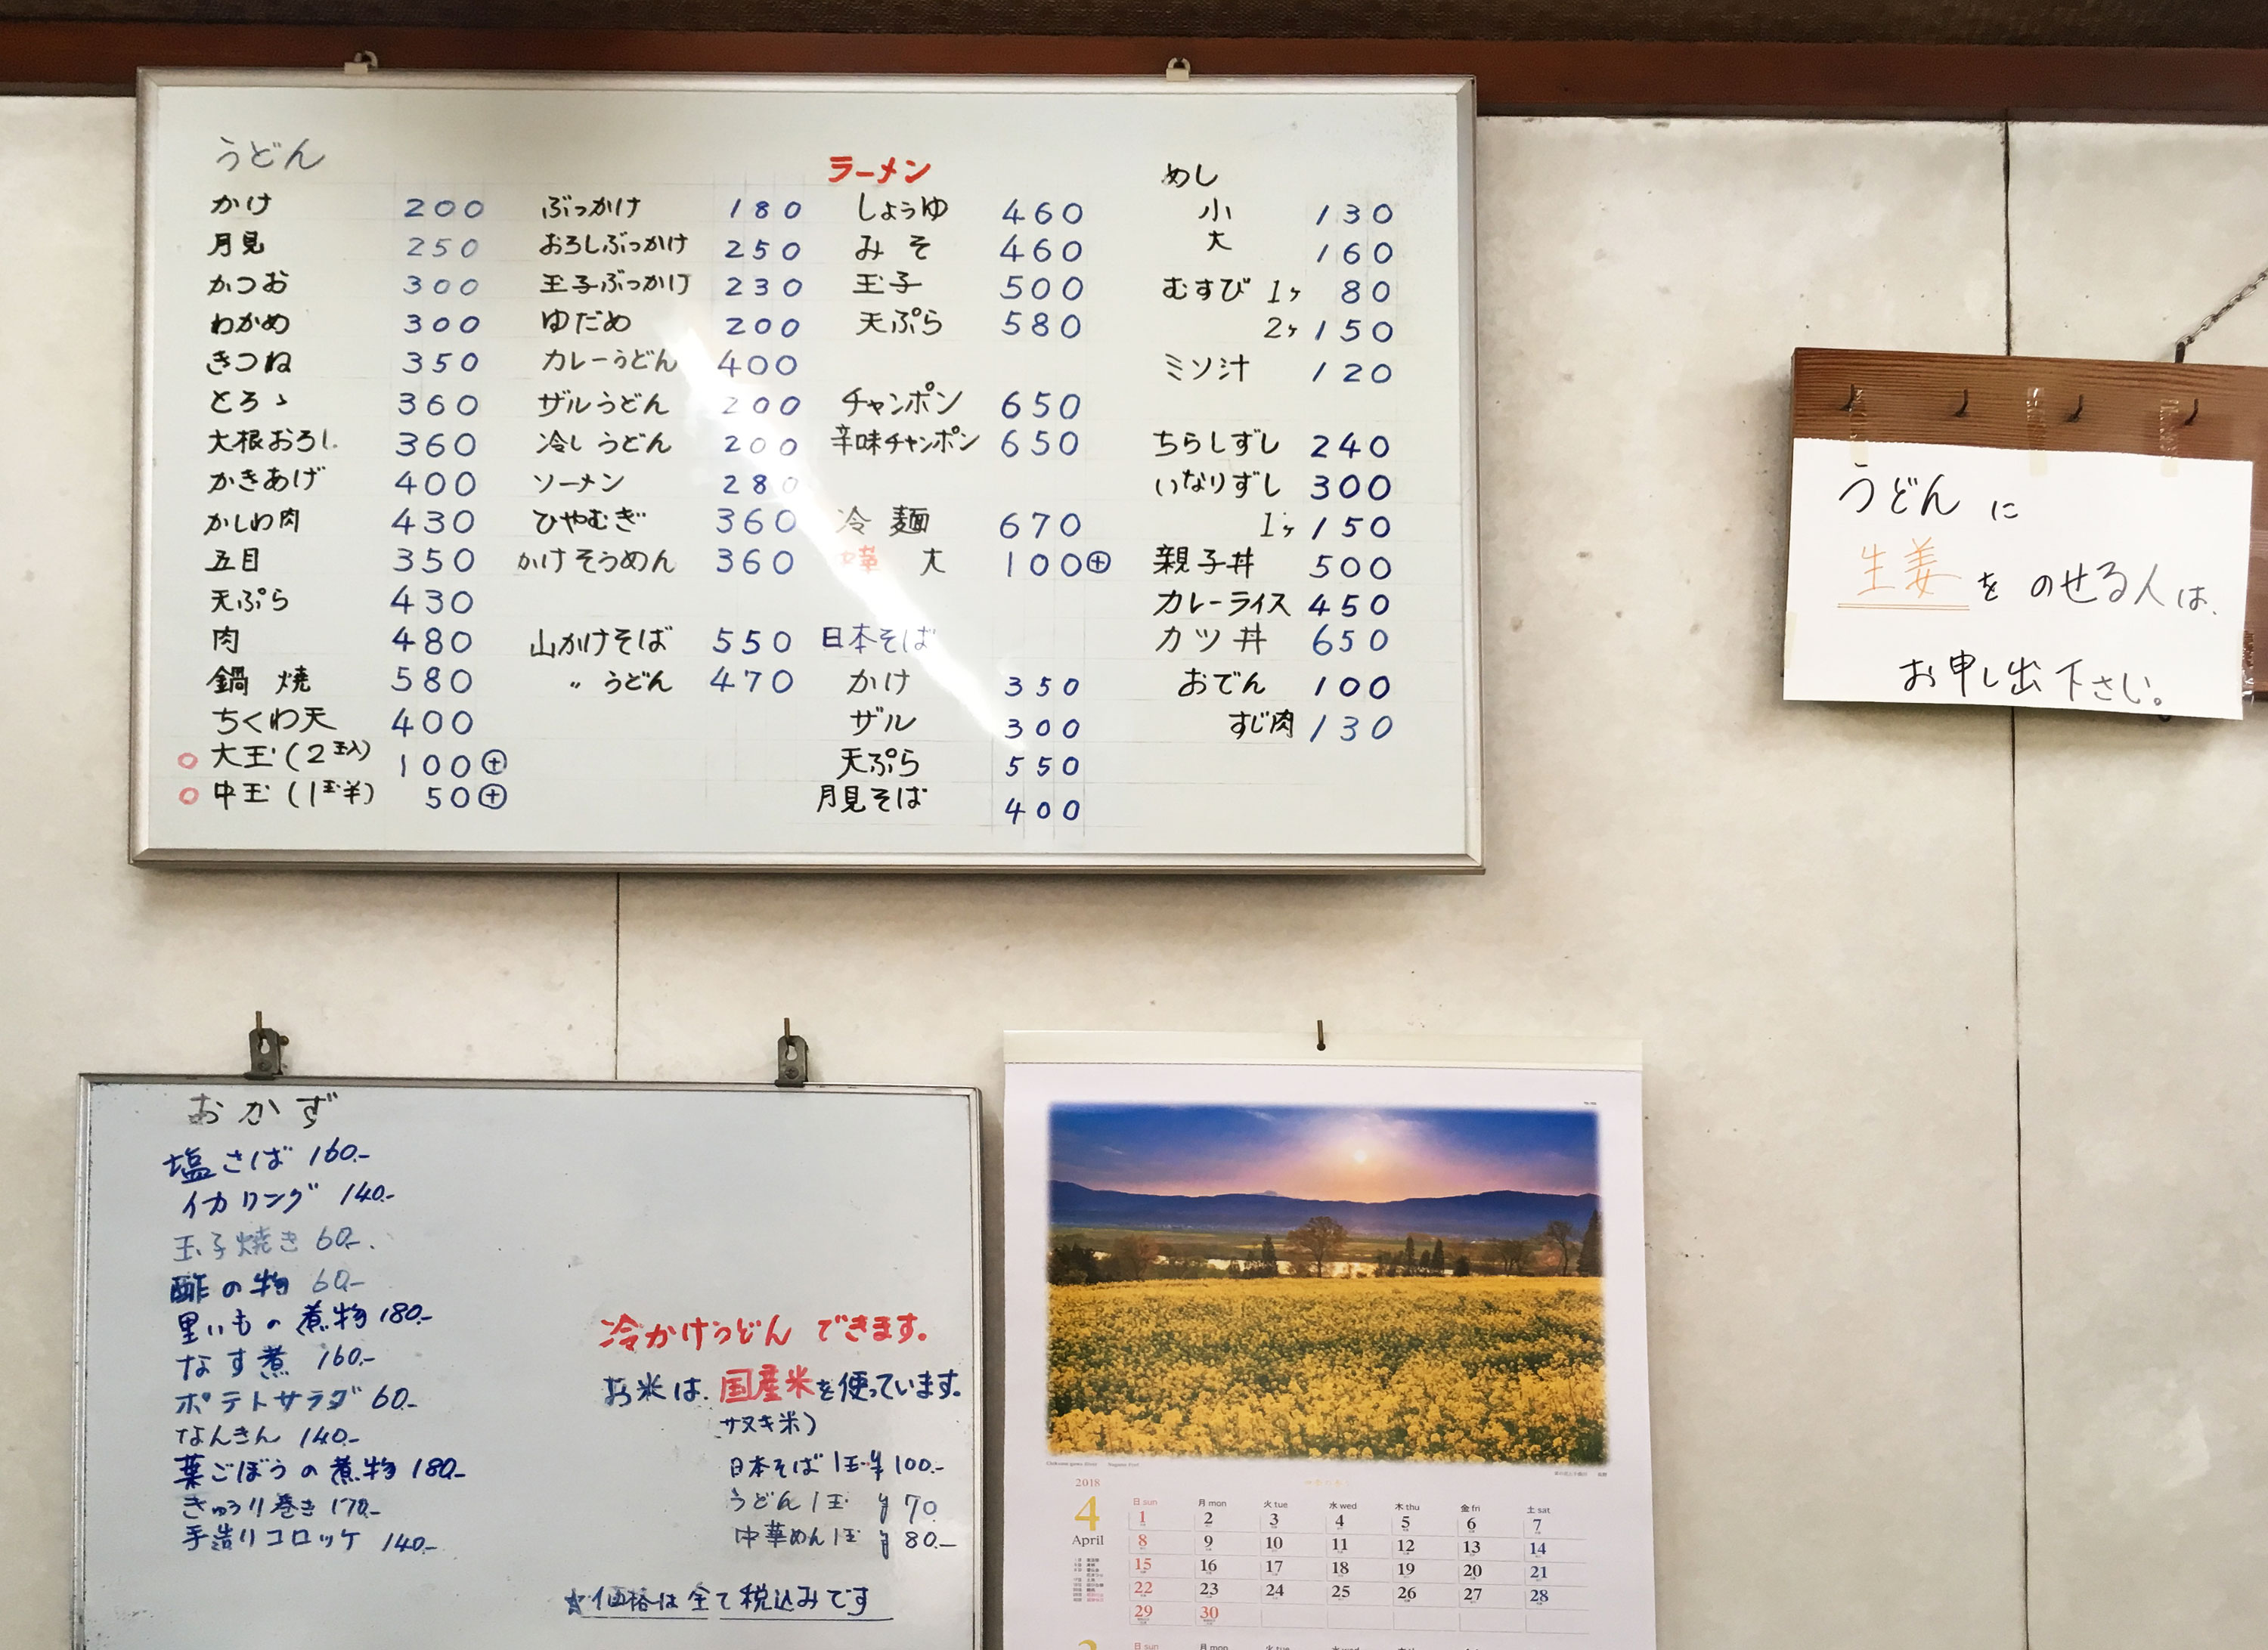 うどん
かけ 200
月見 250
かつお 300
わかめ 300
きつね 350
とろゝ 360
大根おろし 360
かきあげ 400
かしわ肉 430
五目 350
天ぷら 430
肉 480
鍋焼 580
ちくわ天 400
大玉(2玉入) 100⊕
中玉(1玉半) 50⊕
ぶっかけ 180
おろしぶっかけ 250
玉子ぶっかけ 230
ゆだめ 200
カレーうどん 400
ザルうどん 200
冷しうどん 200
ソーメン 280
ひやむぎ 360
かけそうめん 360
山かけそば 550
〃 うどん 470
ラーメン
しょうゆ 460
みそ 460
玉子 500
天ぷら 580
チャンポン 650
辛味チャンポン 650
冷麺 670
大 100⊕
日本そば
かけ 350
ザル 300
天ぷら 550
月見そば 400
めし
小 130
大 160
むすび 1ヶ 80
2ヶ 150
ミソ汁 120
ちらしずし 240
いなりずし 300
1ヶ 150
親子丼 500
カレーライス 450
カツ丼 650
おでん 100
すじ肉 130
うどんに
生姜をのせる人は、
お申し出下さい。
おかず
塩さば 160.-
イカリング 140.-
玉子焼き 60.-
酢の物 60.-
里いもの煮物 180.-
なす煮 160.-
ポテトサラダ 60.-
なんきん 140.-
葉ごぼうの煮物 180.-
きゅうり巻き 170.-
手造りコロッケ 140.-
冷かけうどん できます。
お米は、国産米を使っています。
サヌキ米)
日本そば 1玉 ¥100.-
うどん 1玉 ¥70
中華めん 1玉 ¥80.-
☆価格は全て税込みです
2018
4
April
日sun 月mon 火tue 水wed 木thu 金fri 土sat
1 2 3 4 5 6 7
8 9 10 11 12 13 14
15 16 17 18 19 20 21
22 23 24 25 26 27 28
29 30